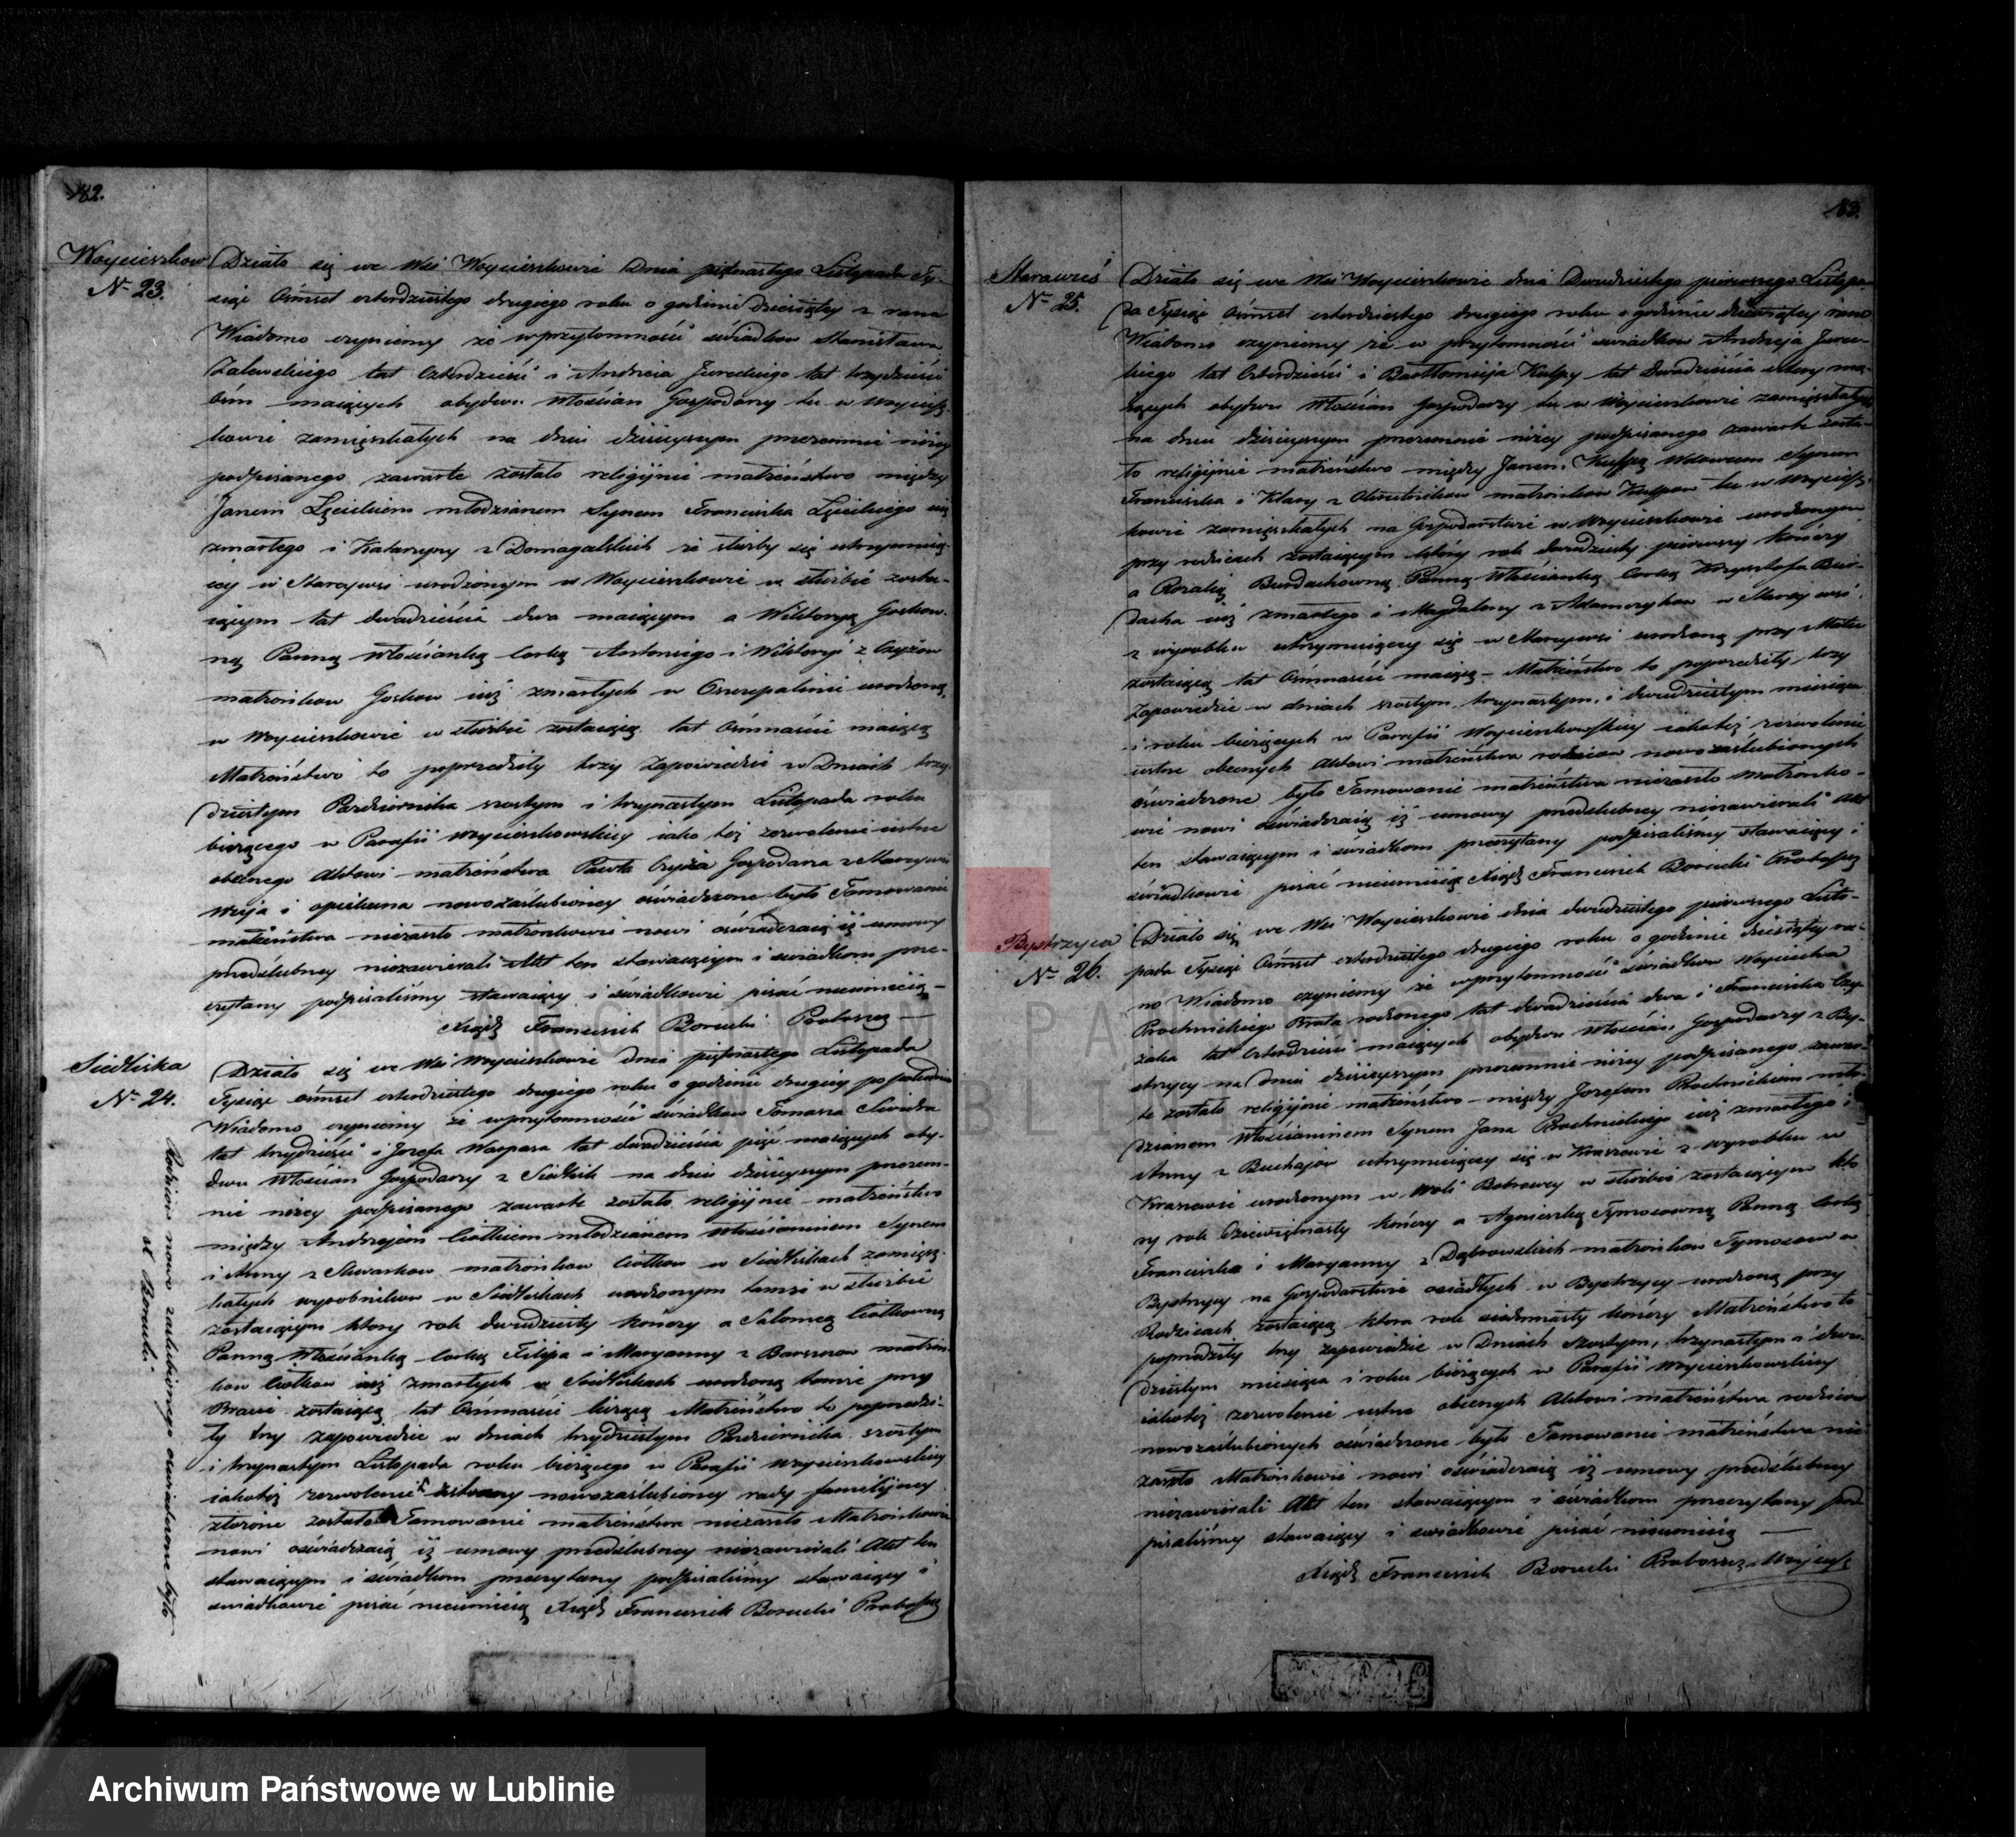 182.
Woycieszkow
N. 23.
Działo się we Wsi Woycieszkowie Dnia piętnastego Listopada Ty-
siąc Ośmset czterdziestego drugiego roku o godzinie dziesiątey z rana
Wiadomo czyniemy że w przytomności świadkow Stanisława
Zalewskiego lat Czterdzieści i Andrzeia Jureckiego lat trzydzieści
ośm maiących obydwu Włościan Gospodarzy tu w Woyciesz-
kowie zamięszkałych na dniu dzisieyszym przezemnie niżey
podpisanego zawarte zostało religijnie małżeństwo między
Janem młodzianem Synem Franciszka iuż
zmarłego i Katarzyny z Domagalskich ze służby się utrzymuią-
cey w Starey wsi urodzonym w Woycieszkowie w służbie zosta-
iącym lat dwadzieścia dwa maiącym a Wiktoryą Goskow-
ną Panną Włościanką Corką Antoniego i Wiktoryi z Czyżow
małżonkow Goskow iuż zmarłych w urodzoną
w Woycieszkowie w służbie zostaiącą lat Ośmnaście maiącą
Małżeństwo to poprzedziły trzy Zapowiedzie w Dniach trzy-
dziestym Pazdziernika szostym i trzynastym Listopada roku
bieżącego w Parafii Woycieszkowskiey iako też zezwolenie ustne
obecnego Aktowi małżeństwa Pawła Czyża Gospodarza z Starey wsi
Wuja i opiekuna nowozaślubioney oświadczone było Tamowanie
małżeństwa niezaszło małżonkowie nowi oświadczaią iż umowy
przedślubney niezawierali Akt ten stawaiącym i świadkom prze-
czytany podpisaliśmy stawaiący i świadkowie pisać nieumieią —
Xiądz Franciszek Borucki Proboszcz —
Siedliska
N. 24.
Działo się we Wsi Woycieszkowie dnia piętnastego Listopada
Tysiąc ośmset czterdziestego drugiego roku o godzinie drugiey po południu
Wiadomo czyniemy że w przytomności świadkow Tomasza
lat trzydzieści i Jozefa Kaspra lat dwadzieścia pięć maiących oby-
dwu Włościan Gospodarzy z Siedlisk na dniu dzisieyszym przezem-
nie niżey podpisanego zawarte zostało religijnie małżeństwo
między Andrzejem Ciołkiem młodzianem Włościaninem Synem
i Anny z małżonkow Ciołkow w Siedliskach zamięsz-
kałych wyrobnikow w Siedliskach urodzonym tamże w służbie
zostaiącym ktory rok dwudziesty kończy a Salomeą Ciołkowną
Panną Włościanką Corką Filipa i Maryanny z małżon-
kow Ciołkow iuż zmarłych w Siedliskach urodzoną tamże przy
Bracie zostaiącą lat Ośmnaście liczącą Małżeństwo to poprzedzi-
ły trzy zapowiedzie w dniach trzydziestym Pazdziernika szostym
i trzynastym Listopada roku bieżącego w Parafii Woycieszkowskiey
iakoteż zezwolenie nowozaślubioney rady familijney
złożone zostało Tamowanie małżeństwa niezaszło Małżonkowie
nowi oświadczaią iż umowy przedślubney niezawierali Akt ten
stawaiącym i świadkom przeczytany podpisaliśmy stawaiący i
świadkowie pisać nieumieią Xiądz Franciszek Borucki Proboszcz
Rodzicow nowo zaślubionego oswiadczone było
Borucki.
183.
Starawieś
N. 25.
Działo się we Wsi Woycieszkowie dnia Dwudziestego pierwszego Listopa-
da Tysiąc Ośmset czterdziestego drugiego roku o godzinie dziewiątey rano
Wiadomo czyniemy że w przytomności świadkow Andrzeja Jurec-
kiego lat Czterdzieści i Bartłomieja Kulpy lat Dwadzieścia cztery ma-
iących obydwu Włościan Gospodarzy tu w Woycieszkowie zamięszkałych
na dniu dzisieyszym przezemnie niżey podpisanego zawarte zosta-
ło religijnie małżeństwo między Janem Kulpą Wdowcem Synem
Franciszka i Klary z małżonkow Kulpow tu w Woyciesz-
kowie zamięszkałych na Gospodarstwie w Woycieszkowie urodzonym
przy rodzicach zostaiącym ktory rok dwudziesty pierwszy kończy
a Rozalią Burdachowną Panną Włościanką Corką Krzysztofa Bur-
dacha iuż zmarłego i Magdaleny z Adamczykow w Starey wsi
z wyrobku utrzymuiącey się w Starey wsi urodzoną przy Matce
zostaiącą lat Ośmnaście maiącą — Małżeństwo to poprzedziły trzy
Zapowiedzie w dniach szostym, trzynastym, i dwudziestym miesiąca
i roku bieżących w Parafii Woycieszkowskiey iakoteż zezwolenie
ustne obecnych Aktowi małżeństwa rodzicow nowozaślubionych
oświadczone było Tamowanie małżeństwa niezaszło Małżonko-
wie nowi oświadczaią iż umowy przedślubney niezawierali Akt
ten stawaiącym i świadkom przeczytany podpisaliśmy stawaiący i
świadkowie pisać nieumieią Xiądz Franciszek Borucki Proboszcz
Bystrzyca
N. 26.
Działo się we Wsi Woycieszkowie dnia dwudziestego pierwszego Listo-
pada Tysiąc Ośmset czterdziestego drugiego roku o godzinie dziesiątey ra-
no Wiadomo czyniemy że w przytomności świadkow Woyciecha
Prochnickiego Brata rodzonego lat dwadzieścia dwa i Franciszka
lat Czterdzieści maiących obydwu Włościan Gospodarzy z By-
strzycy na Dniu dzisieyszym przezemnie niżey podpisanego zawar-
te zostało religijnie małżeństwo między Jozefem Prochnickim mło-
dzianem Włościaninem Synem Jana Prochnickiego iuż zmarłego i
Anny z Buchajow utrzymuiącey się w z wyrobku w
urodzonym w Woli Bobrowey w służbie zostaiącym kto-
ry rok Dziewiętnasty kończy a Agnieszką Tymosowną Panną Corką
Franciszka i Maryanny z Dąbrowskich małżonkow Tymosow w
Bystrzycy na Gospodarstwie osiadłych w Bystrzycy urodzoną przy
Rodzicach zostaiącą ktora rok siedemnasty kończy Małżeństwo to
poprzedziły trzy zapowiedzie w Dniach Szostym, trzynastym i dwu-
dziestym miesiąca i roku bieżących w Parafii Woycieszkowskiey
iakoteż zezwolenie ustne obecnych Aktowi małżeństwa rodzicow
nowozaślubionych oświadczone było Tamowanie małżeństwa nie-
zaszło Małżonkowie nowi oświadczaią iż umowy przedślubney
niezawierali Akt ten stawaiącym i świadkom przeczytany pod-
pisaliśmy stawaiący i świadkowie pisać nieumieią —
Xiądz Franciszek Borucki Proboszcz
ARCHIWUM PAŃSTWOWE
W LUBLINIE
Archiwum Państwowe w Lublinie